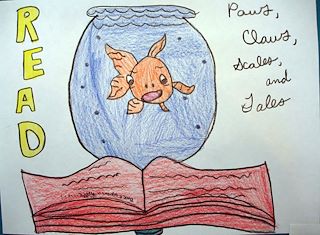 READ
Paws,
Claws,
Scales,
and
Tales